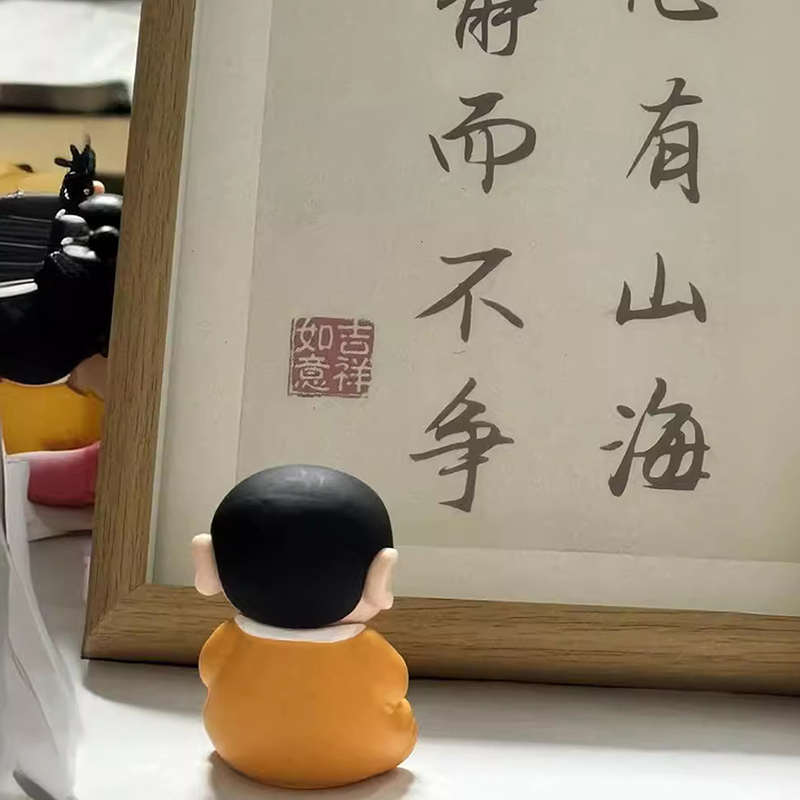 心有山海
静而不争
吉祥如意